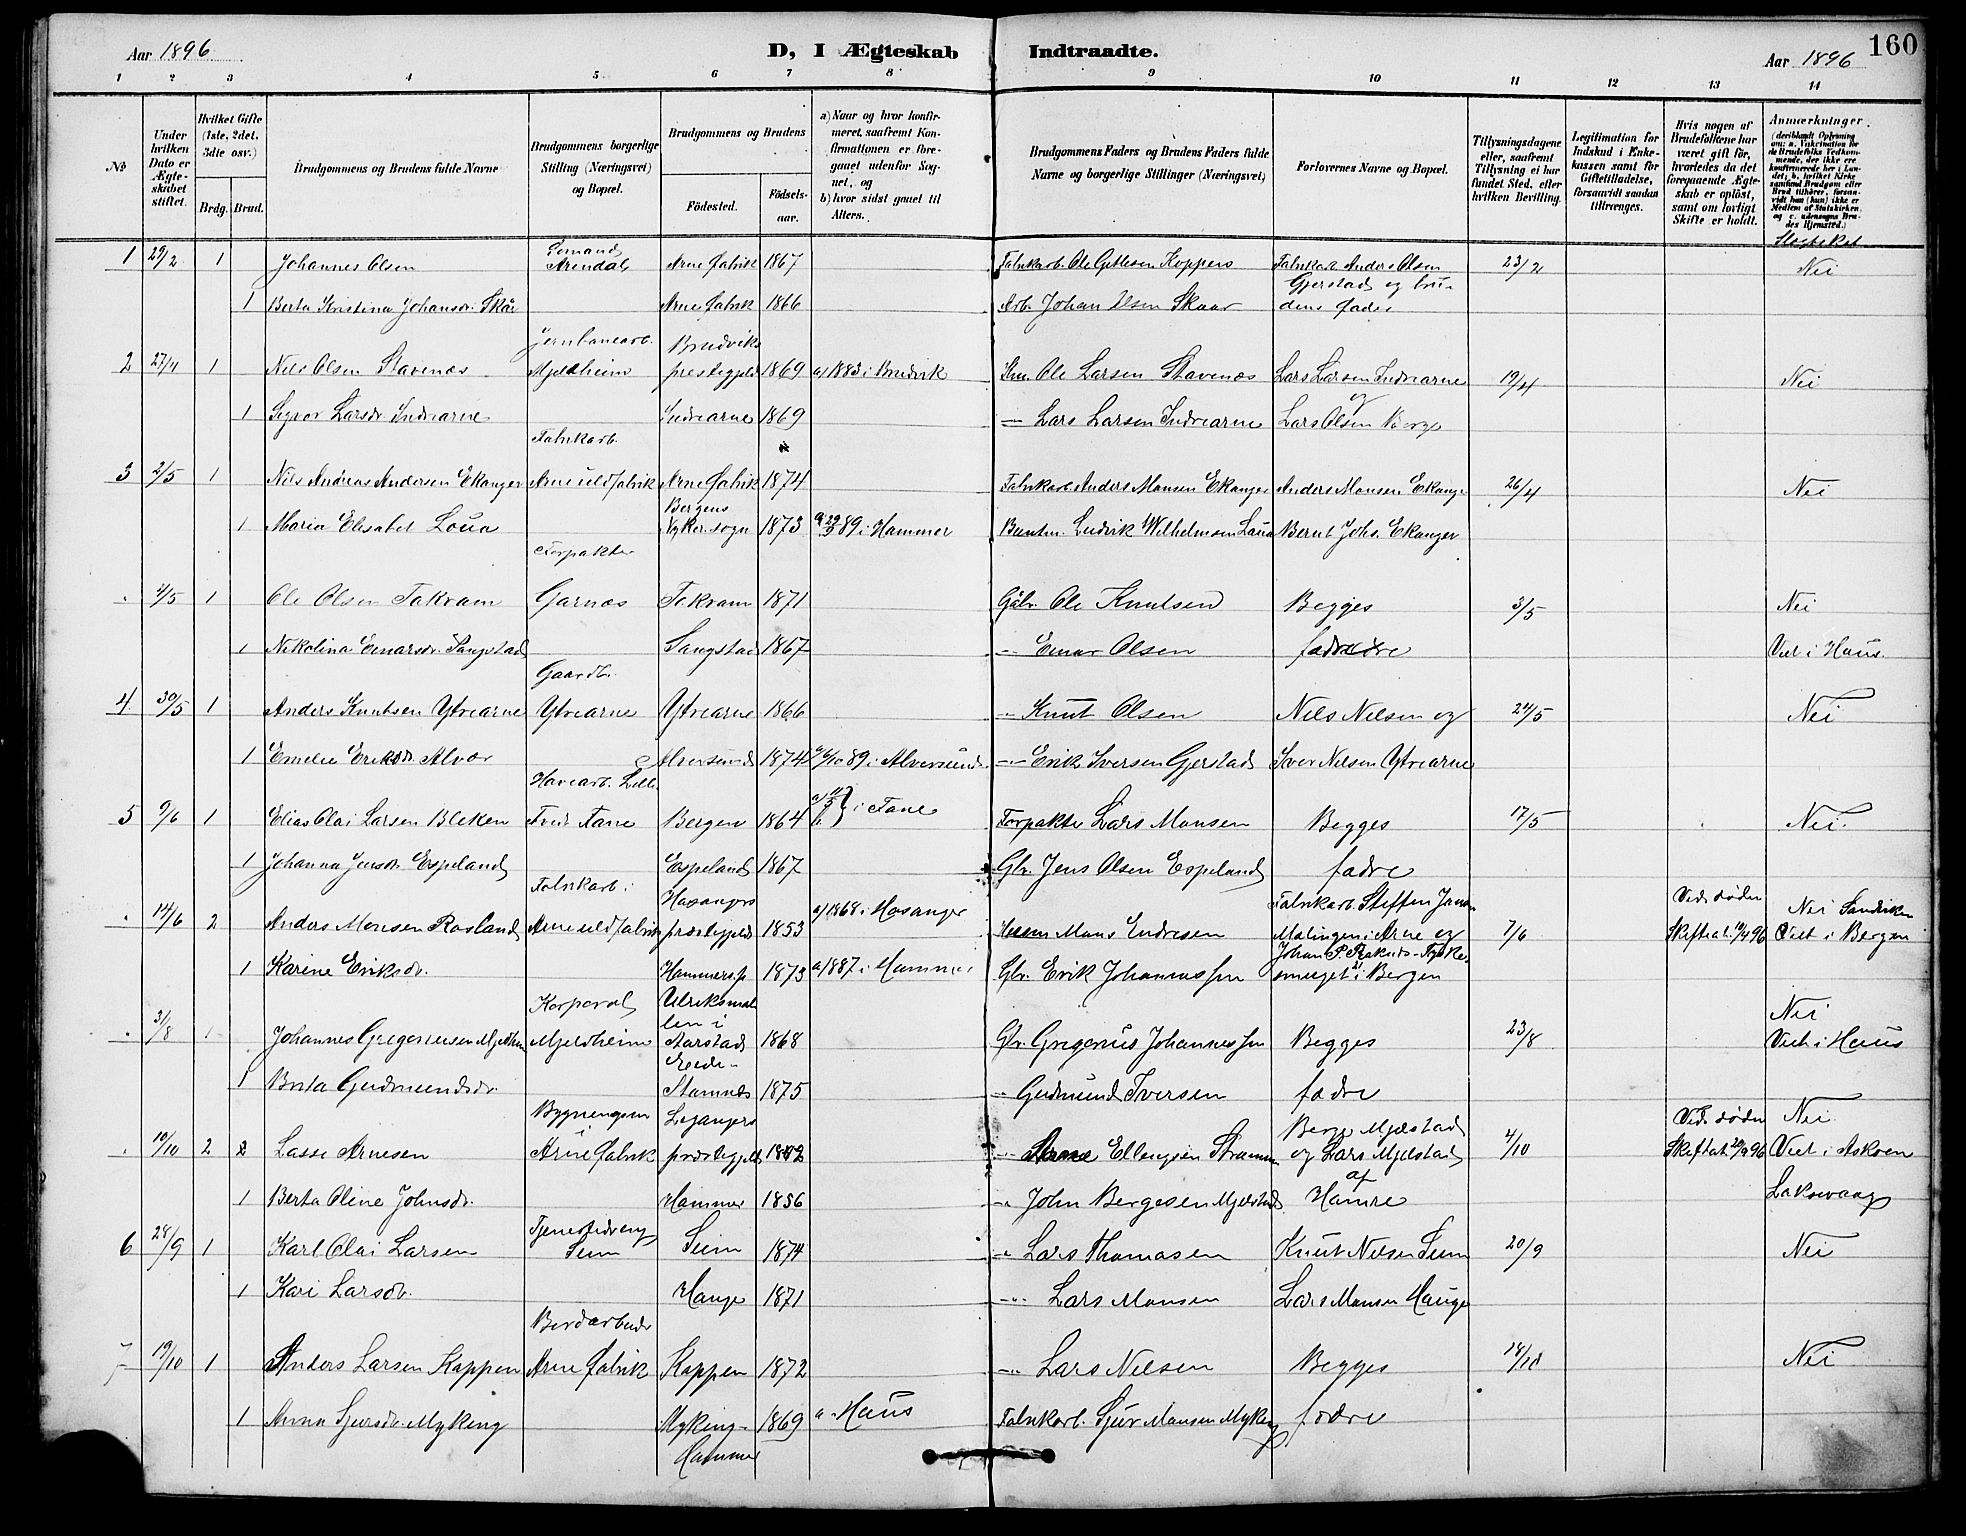 Aar 1896
D, I Ægteskab Indtraadte.
Aar 1896
160
1 2 3 4 5 6 7 8 9 10 11 12 13 14
No
Under hvilken Dato er Ægteskabet stiftet.
Hvilket Gifte (1ste, 2det, 3die osv.)
Brdg. Brud.
Brudgommens og Brudens fulde Navne
Brudgommens borgerlige Stilling (Næringsvei) og Bopæl.
Brudgommens og Brudens
Fødested.
Fødselsaar.
a) Naar og hvor konfirmeret, saafremt Konfirmationen er foregaaet udenfor Sognet, og
b) hvor sidst gaaet til Alters.
Brudgommens Faders og Brudens Faders fulde Navne og borgerlige Stillinger (Næringsvei)
Forlovernes Navne og Bopæl.
Tillysningsdagene eller, saafremt Tillysning ei har fundet Sted, efter hvilken Bevilling.
Legitimation for Indskud i Enkekassen samt for Giftetilladelse, forsaavidt saadan tiltrænges.
Hvis nogen af Brudefolkene har været gift før, hvorledes da det foregaaende Ægteskab er opløst, samt om lovligt Skifte er holdt.
Anmærkninger.
(deriblandt Oplysning om: a. Vakcination for de Brudefolks Vedkommende, der ikke ere konfirmerede her i Landet, b. hvilket Kirkesamfund Brudgom eller Brud tilhører, forsaavidt han (hun) ikke er Medlem af Statskirken, og c. udensogns Brudes Hjemsted.)
Slegtskab
1 29/2 1 Johannes Olsen Sømand Arendal Arne fabrik 1867 Fabrikarb. Ole Gitlesen Koppers Fabrikarb. Anders Olsen 23/2 Nei
Gjerstad og bru-
1 Berta Kristina Johansdr. Skår Arne fabrik 1866 Arb. Johan Olsen Skaar dens fader
Jernbanearb. Bruvik
2 27/4 1 Nils Olsen Stavenæs Mjeldheim prestegjeld 1869 a) 1883 i Bruvik Ole Larsen Stavenæs Lars Larsen Indrearne 19/4 Nei
og
1 Larsdr. Indrearne Indrearne 1869 — Lars Larsen Indrearne Lars Olsen
Fabrikarb.
3 2/5 1 Nils Andreas Andersen Ekanger Arne uldfabrik Arne fabrik 1874 Fabrikarb. Anders Monsen Ekanger Anders Monsen Ekanger 26/4 Nei
Bergens
1 Maria Elisabet Loua Nykor. sogn 1873 89 i Hammer Ludvik Wilhelmsen Laua Bernt Johs. Ekanger
Forpakter
4/5 1 Ole Olsen Takvam Garnæs Takvam 1871 Gbr. Ole Knutsen Begges 3/5 Nei
1 Nikolina Einarsdr. Sangstad Sangstad 1867 — Einar Olsen fædre Viet i Haus.
Gaardbr.
4 30/5 1 Anders Knutsen Ytrearne Ytrearne Ytrearne 1866 — Knut Olsen Nils Nilsen og 24/5 Nei
1 Emelie Eriksdr. Alvær Alversund 1874 a) 6/10 89 i Alversund — Erik Iversen Gjerstad Iver Nilsen Ytrearne
Havearb. Lille
5 9/6 1 Elias Olai Larsen Bleken Tveit Fane Bergen 1864 i Fane Forpakter Lars Monsen Begges 17/5 Nei.
1 Johanna Jensdr. Espeland Espeland 1867 Gbr. Jens Olsen Espeland fædre
Fabrikarb. i Hosangers Fabrikarb. Steffen Ved døden
14/6 2 Anders Monsen Rosland Arne uldfabrik prestegjeld 1853 a) 1868 i Hosanger Husm. Mons Endresen i Arne og 7/6 Skifteat. 11/4 96 Nei Sandviken Viet i Bergen
1 Karine Eriksdr. Hammer 1873 a) 1887 i Hammer Gbr. Erik Johannessen smuget i Bergen
Korporal Ulriksmal
len i Nei
31/8 1 Johannes Gregoriussen Mjeldheim Mjeldheim Aarstad 1868 Gbr. Gregorius Johannessen Begges 23/8 Viet i Haus
1 Brita Gudmundsdr. Stamnes 1875 — Gudmund Iversen fædre
Bygningsm. Leganger Berge Mjelstad Ved døden Nei
10/10 2 2 Lasse Arnesen i Arne fabrik præstegjeld 1842 — Arne Ellengsen og Lars Mjelstad 4/10 Skifteat. 20/9 96 Viet i Askøen
af
1 Berta Oline Johnsdr. Hammer 1856 — John Bergesen Mjelstad Hamre Laksevaag
6 28/9 1 Karl Olai Larsen Tjenestedreng Seim Seim 1874 — Lars Thomasen Knut Nilsen Seim 20/9 Nei
1 Kari Larsdr. Hauge 1871 — Lars Monsen Lars Monsen Hauge
Bordarbeider
7 19/10 1 Anders Larsen Kappen Arne fabrik Kappen 1872 — Lars Nilsen Begges 18/10 Nei
1 Anna Sjursdr. Myking Myking 1869 a. Haus Fabrikarb. Sjur Monsen Myking fædre
Hammer